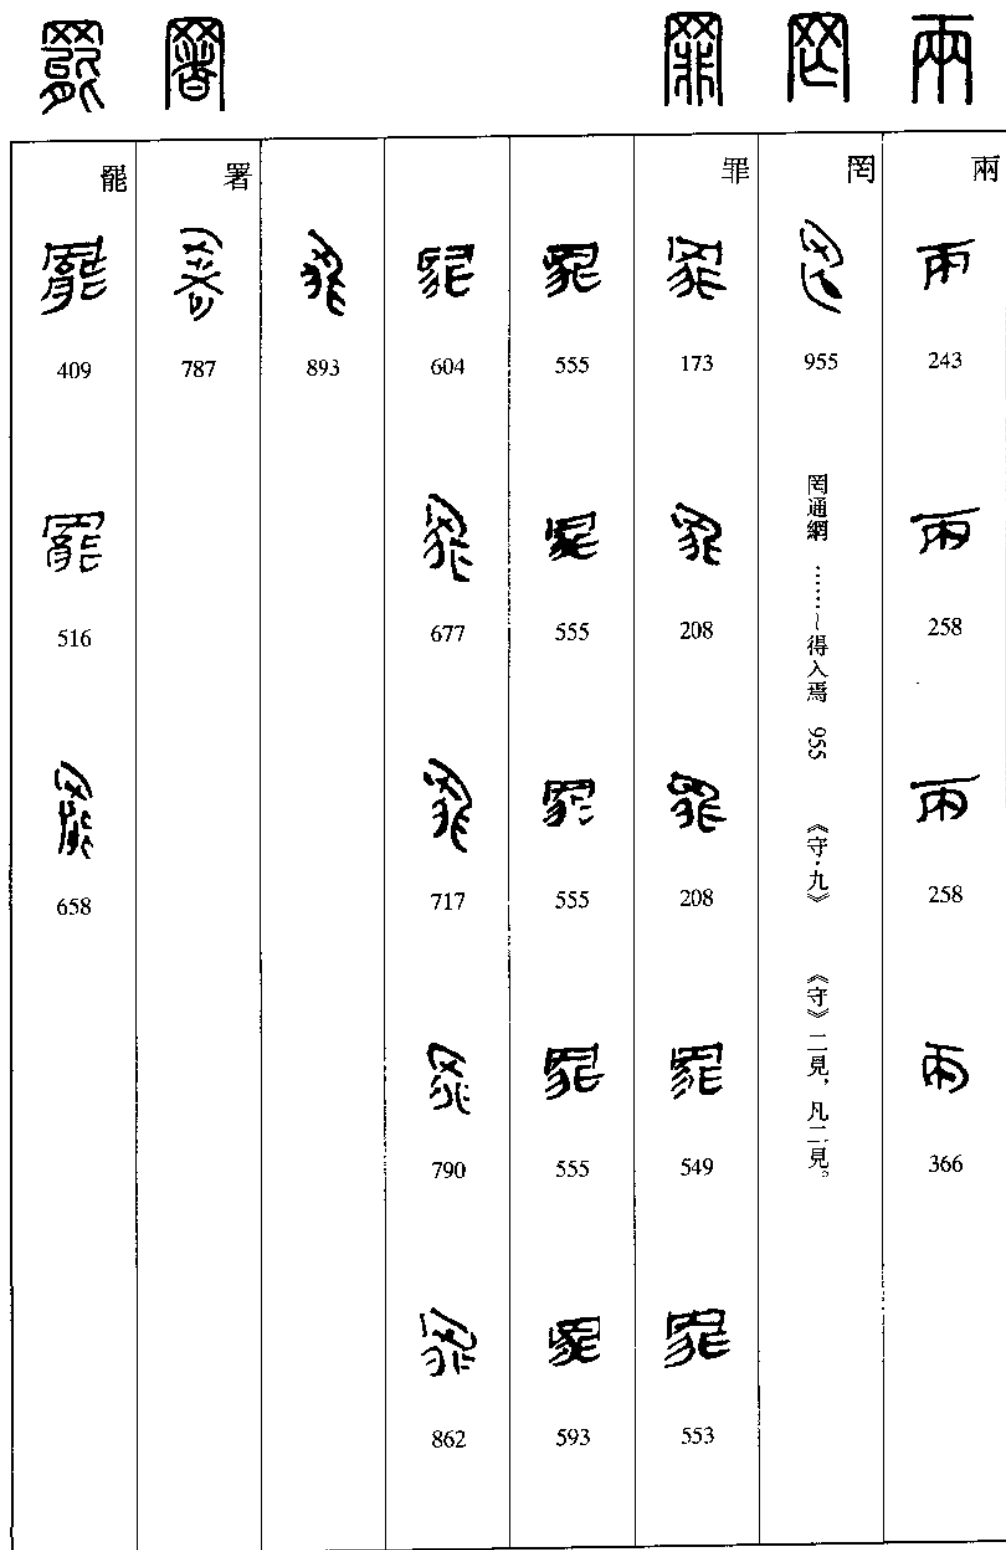 兩
243
258
258
366
罔
955
罔通網 ……～得入焉 955 《守·九》 《守》二見，凡二見。
罪
173
208
208
549
553
555
555
555
555
593
604
677
717
790
862
893
署
787
罷
409
516
658